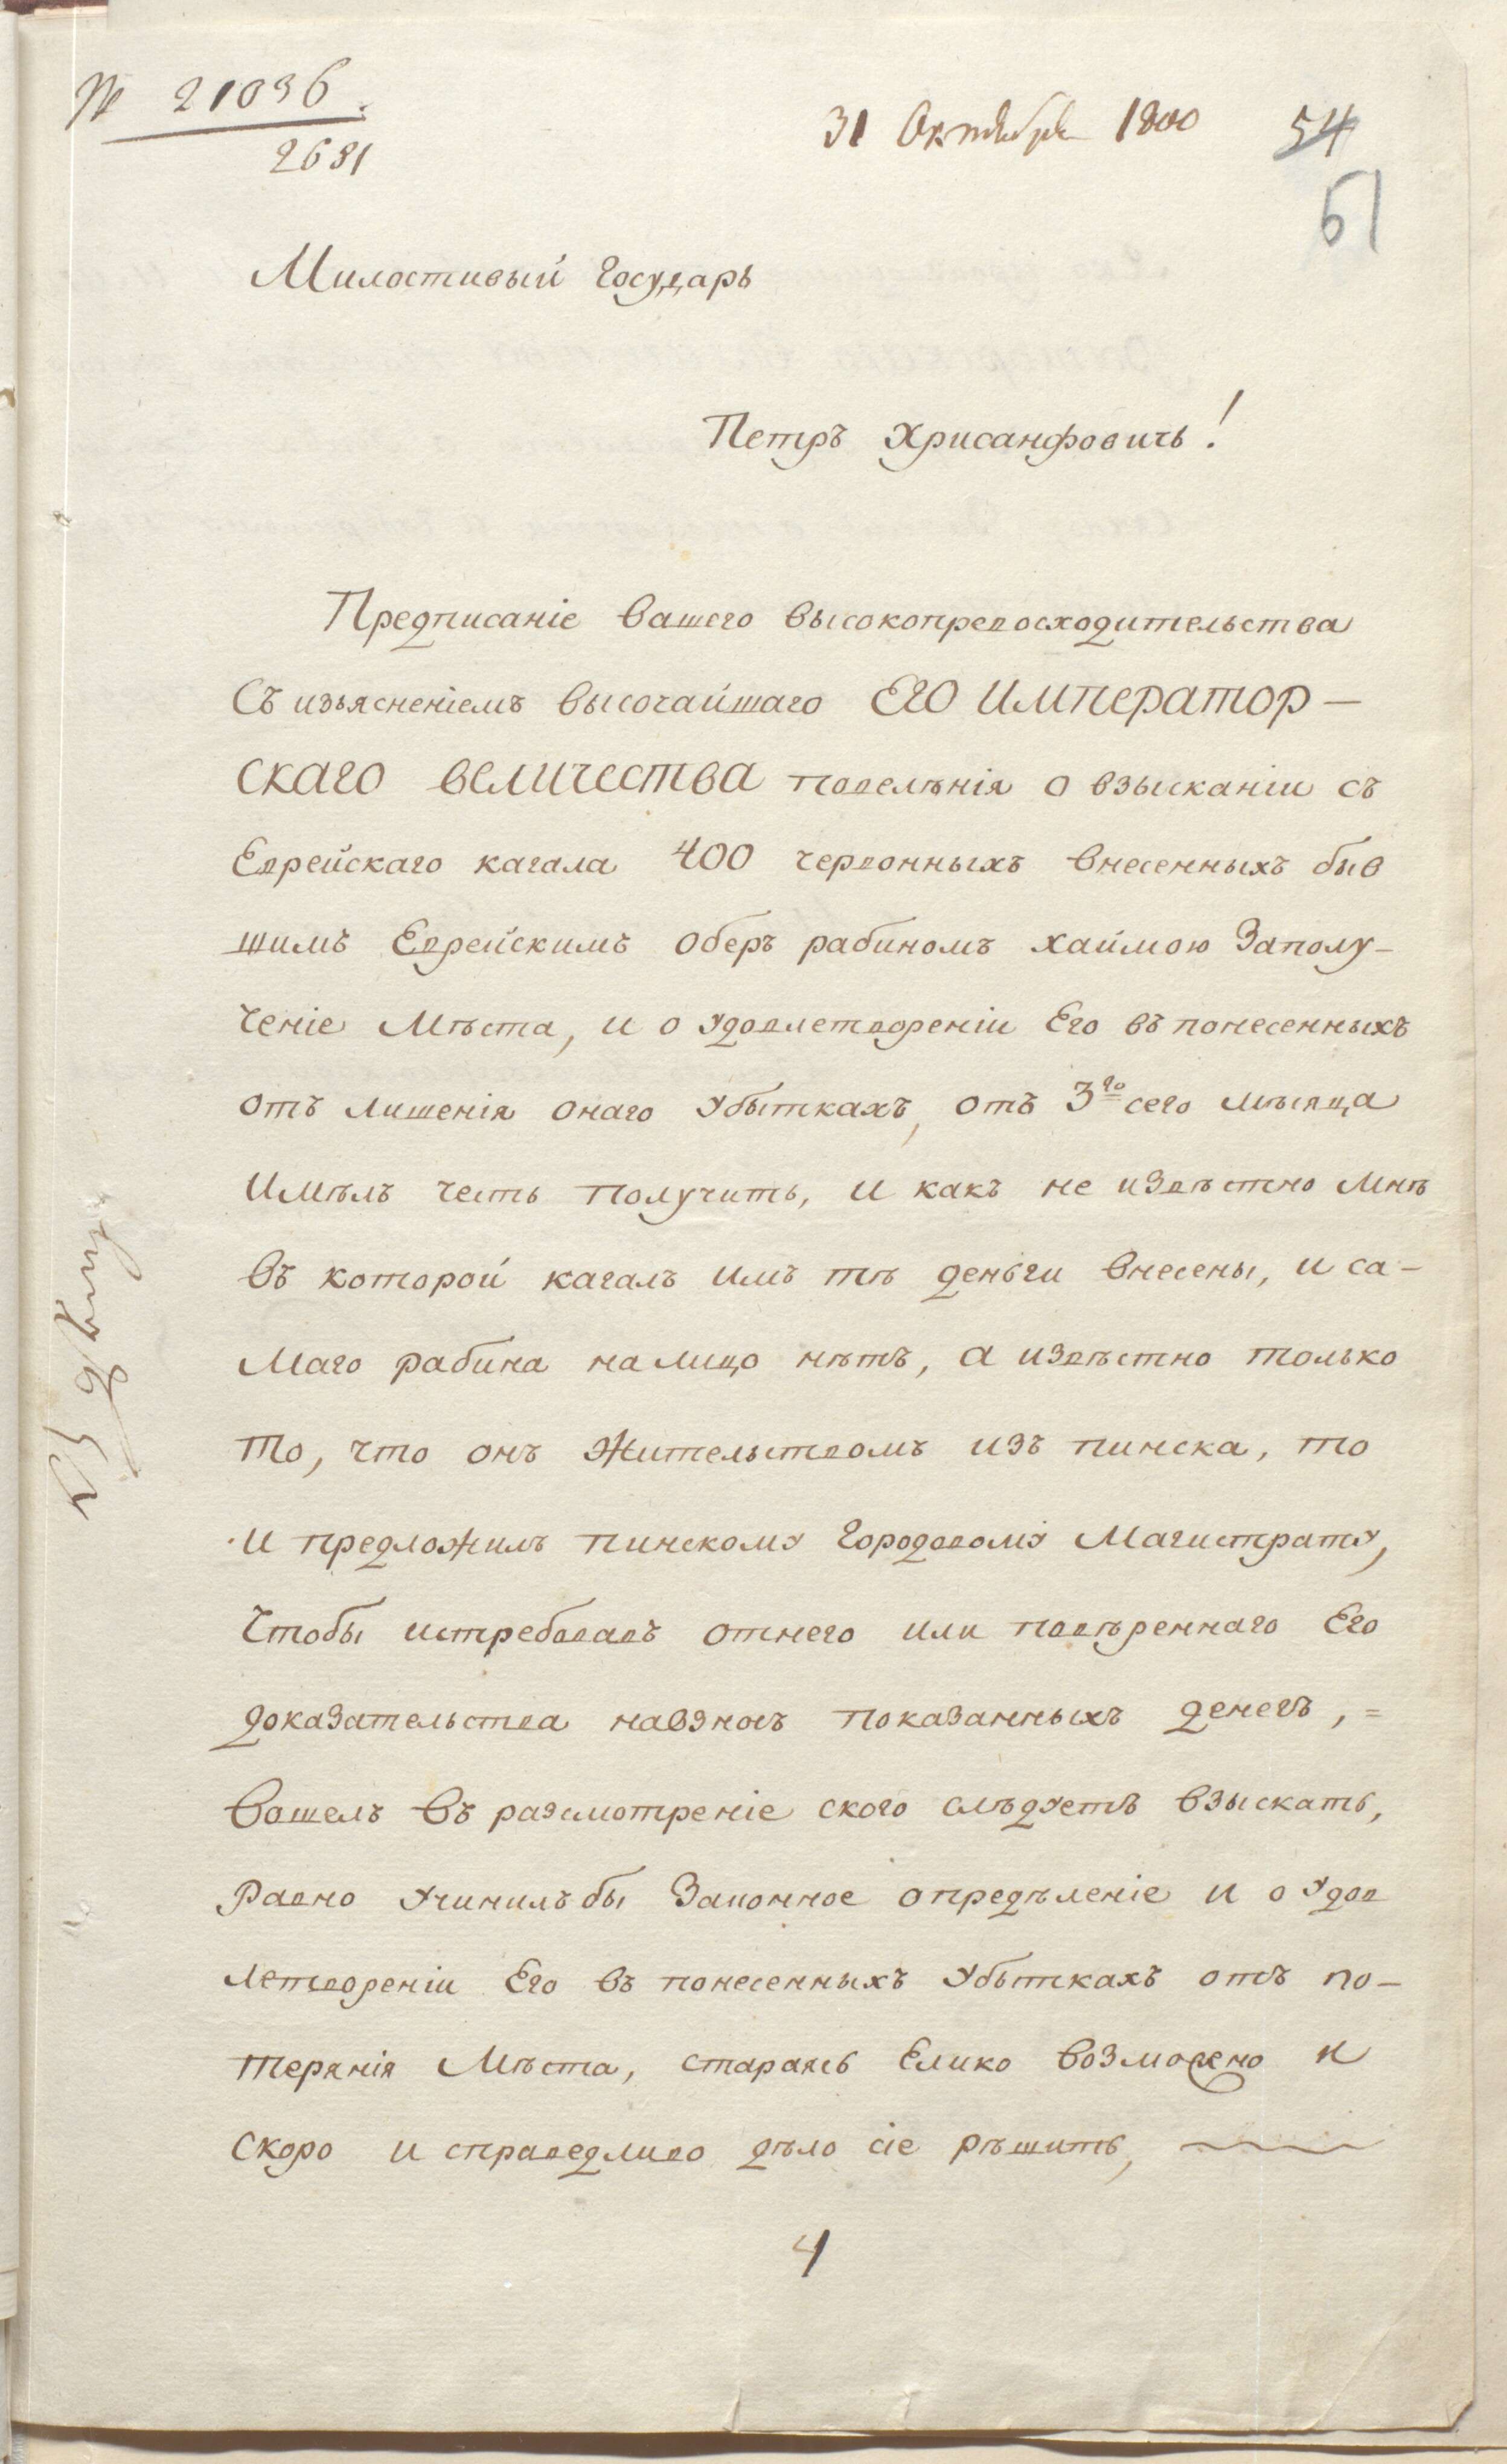 № 21036.
2681
31 Октября 1800
54
61
Милостивый Государь
Петръ Хрисанфовичь!
Предписаніе Вашего высокопревосходительства
Съ изъясненіемъ высочайшаго ЕГО ИМПЕРАТОР-
СКАГО ВЕЛИЧЕСТВА повелѣнія о взысканіи съ
Еврейскаго кагала 400 червонныхъ внесенныхъ быв
шимъ Еврейскимъ оберъ рабиномъ хаймою Заполу-
ченіе Мѣста, и о удовлетвореніи Его въ понесенныхъ
отъ лишенія онаго убыткахъ, отъ 3го сего мѣсяца
Имѣлъ честь получить, и какъ не извѣстно мнѣ
въ которой кагалъ имъ тѣ деньги внесены, и са-
маго рабина налицо нѣтъ, а извѣстно только
то, что онъ Жительствомъ изъ пинска, то
и предложилъ пинскому Городовому Магистрату,
Чтобы истребовавъ отнего или повѣреннаго Его
доказательства навзносъ показанныхъ денегъ, =
Вошелъ въ разсмотреніе ского слѣдуетъ взыскать,
Равно учинилъ бы Законное опредѣленіе и о удов
летвореніи Его въ понесенныхъ убыткахъ отъ по-
терянія Мѣста, стараясь Елико возможно и
скоро и справедливо дѣло сіе рѣшить,
4